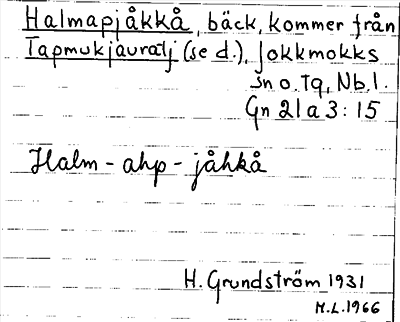 Halmapjåkkå, bäck, kommer från
Tapmukjauratj (se d.), Jokkmokks
sn o. Tg, Nb. l.
Gn 21 a 3 : 15
Halm - ahp - jåhkå
H. Grundström 1931
M.L. 1966